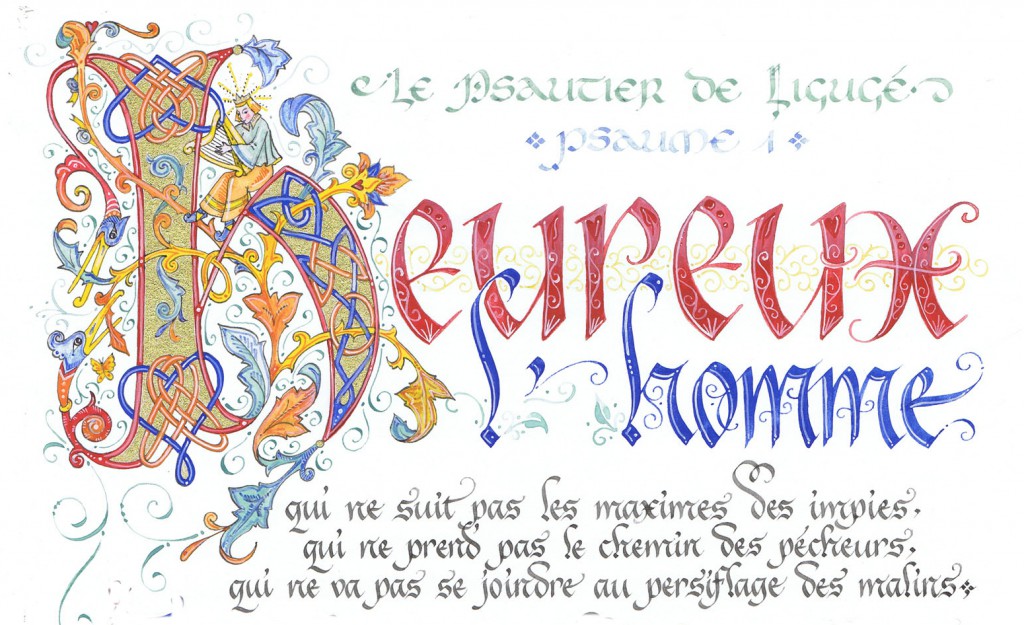 Le Psautier de Ligugé
Psaume 1
Heureux
l'homme
qui ne suit pas les maximes des impies,
qui ne prend pas le chemin des pécheurs,
qui ne va pas se joindre au persiflage des malins